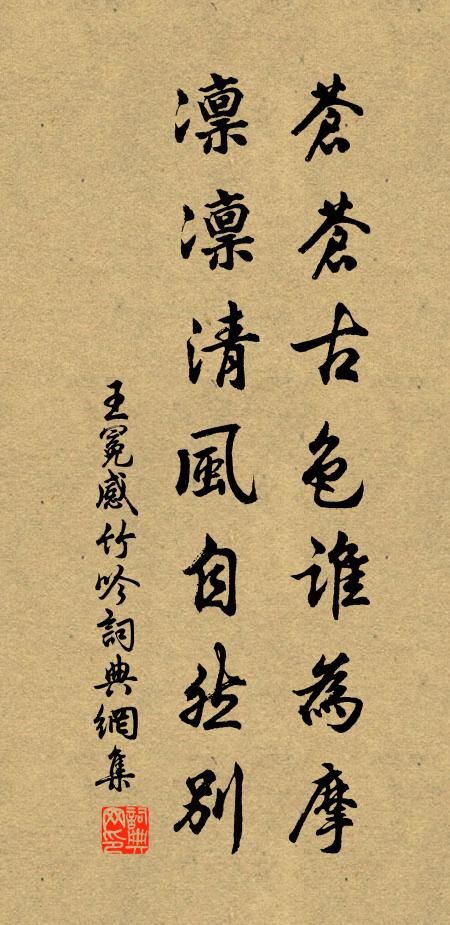 蒼蒼古色誰為摩
凜凜清風自然別
王冕感竹吟詞典網集
詞典網印